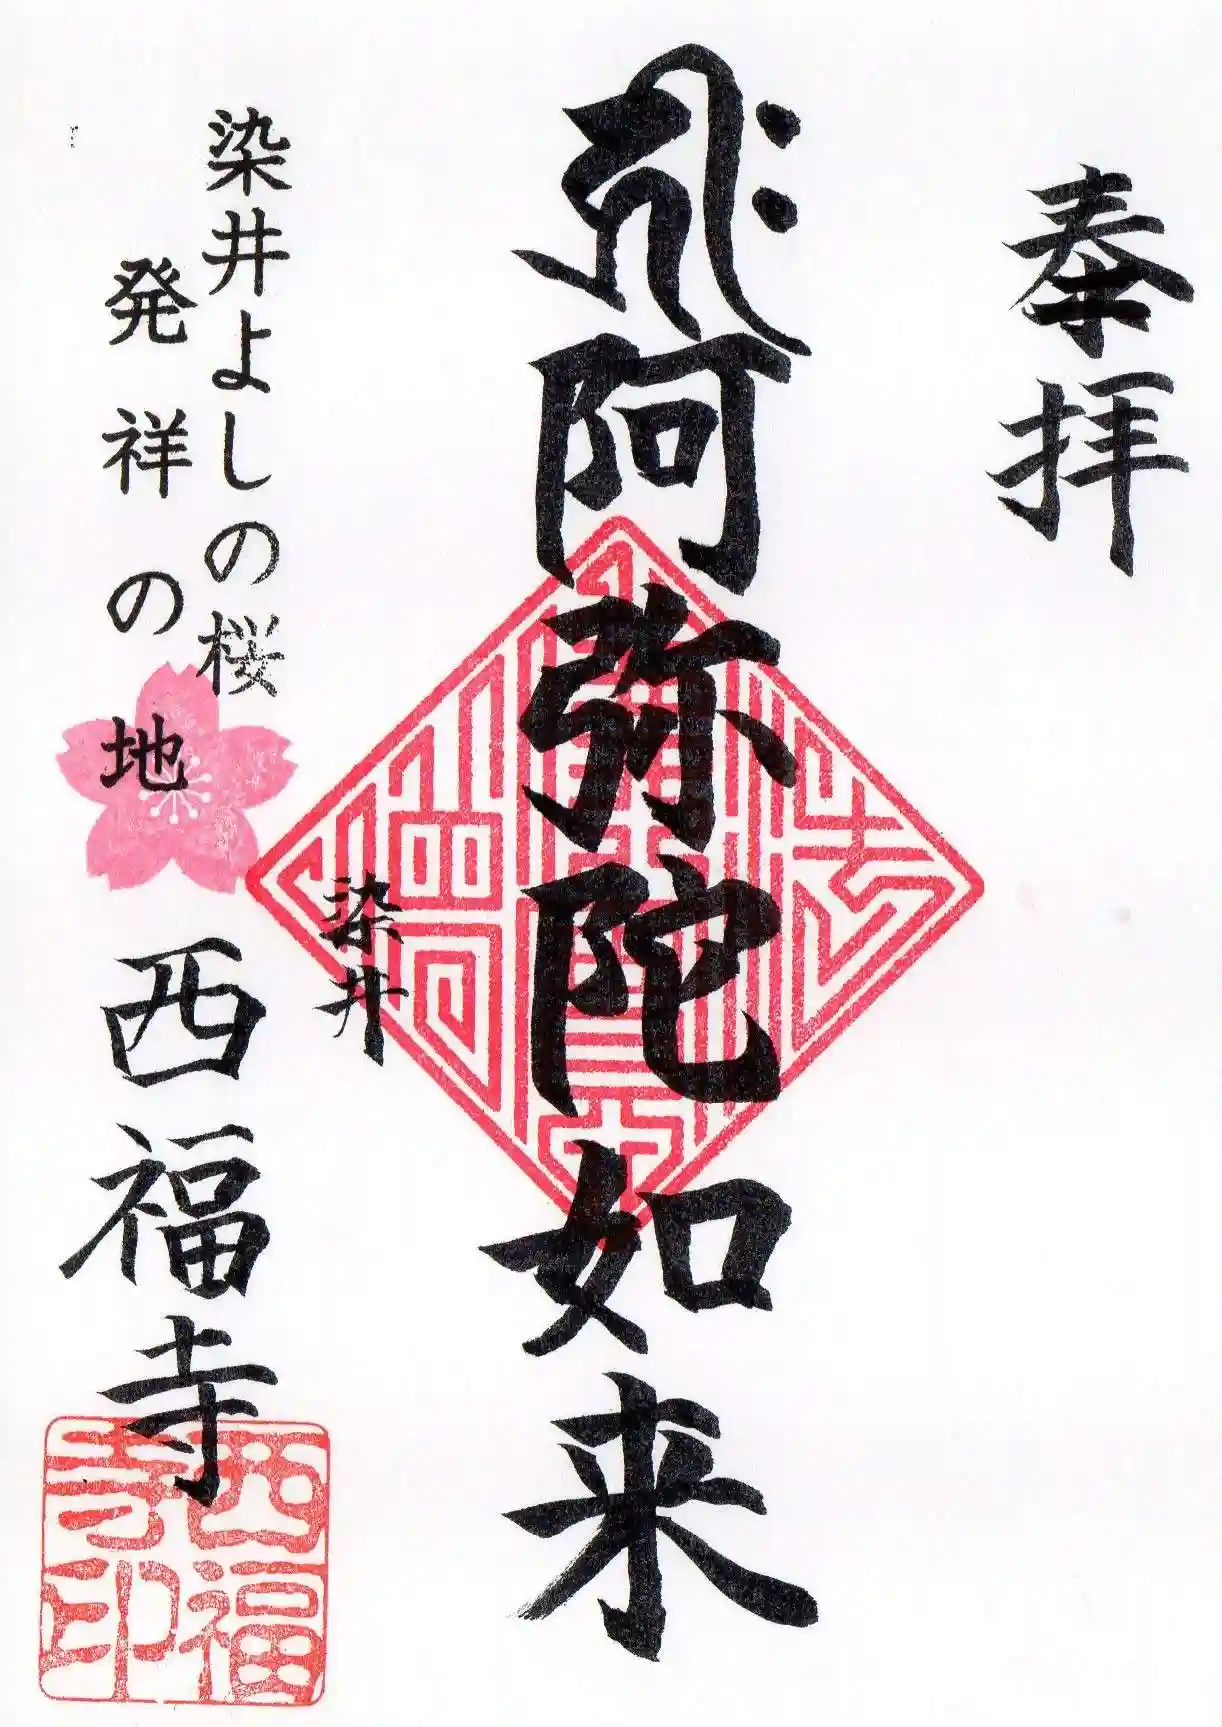 奉拝
ह्रीः
阿弥陀如来
染井
染井よしの桜
発祥の地
西福寺
西福
寺印